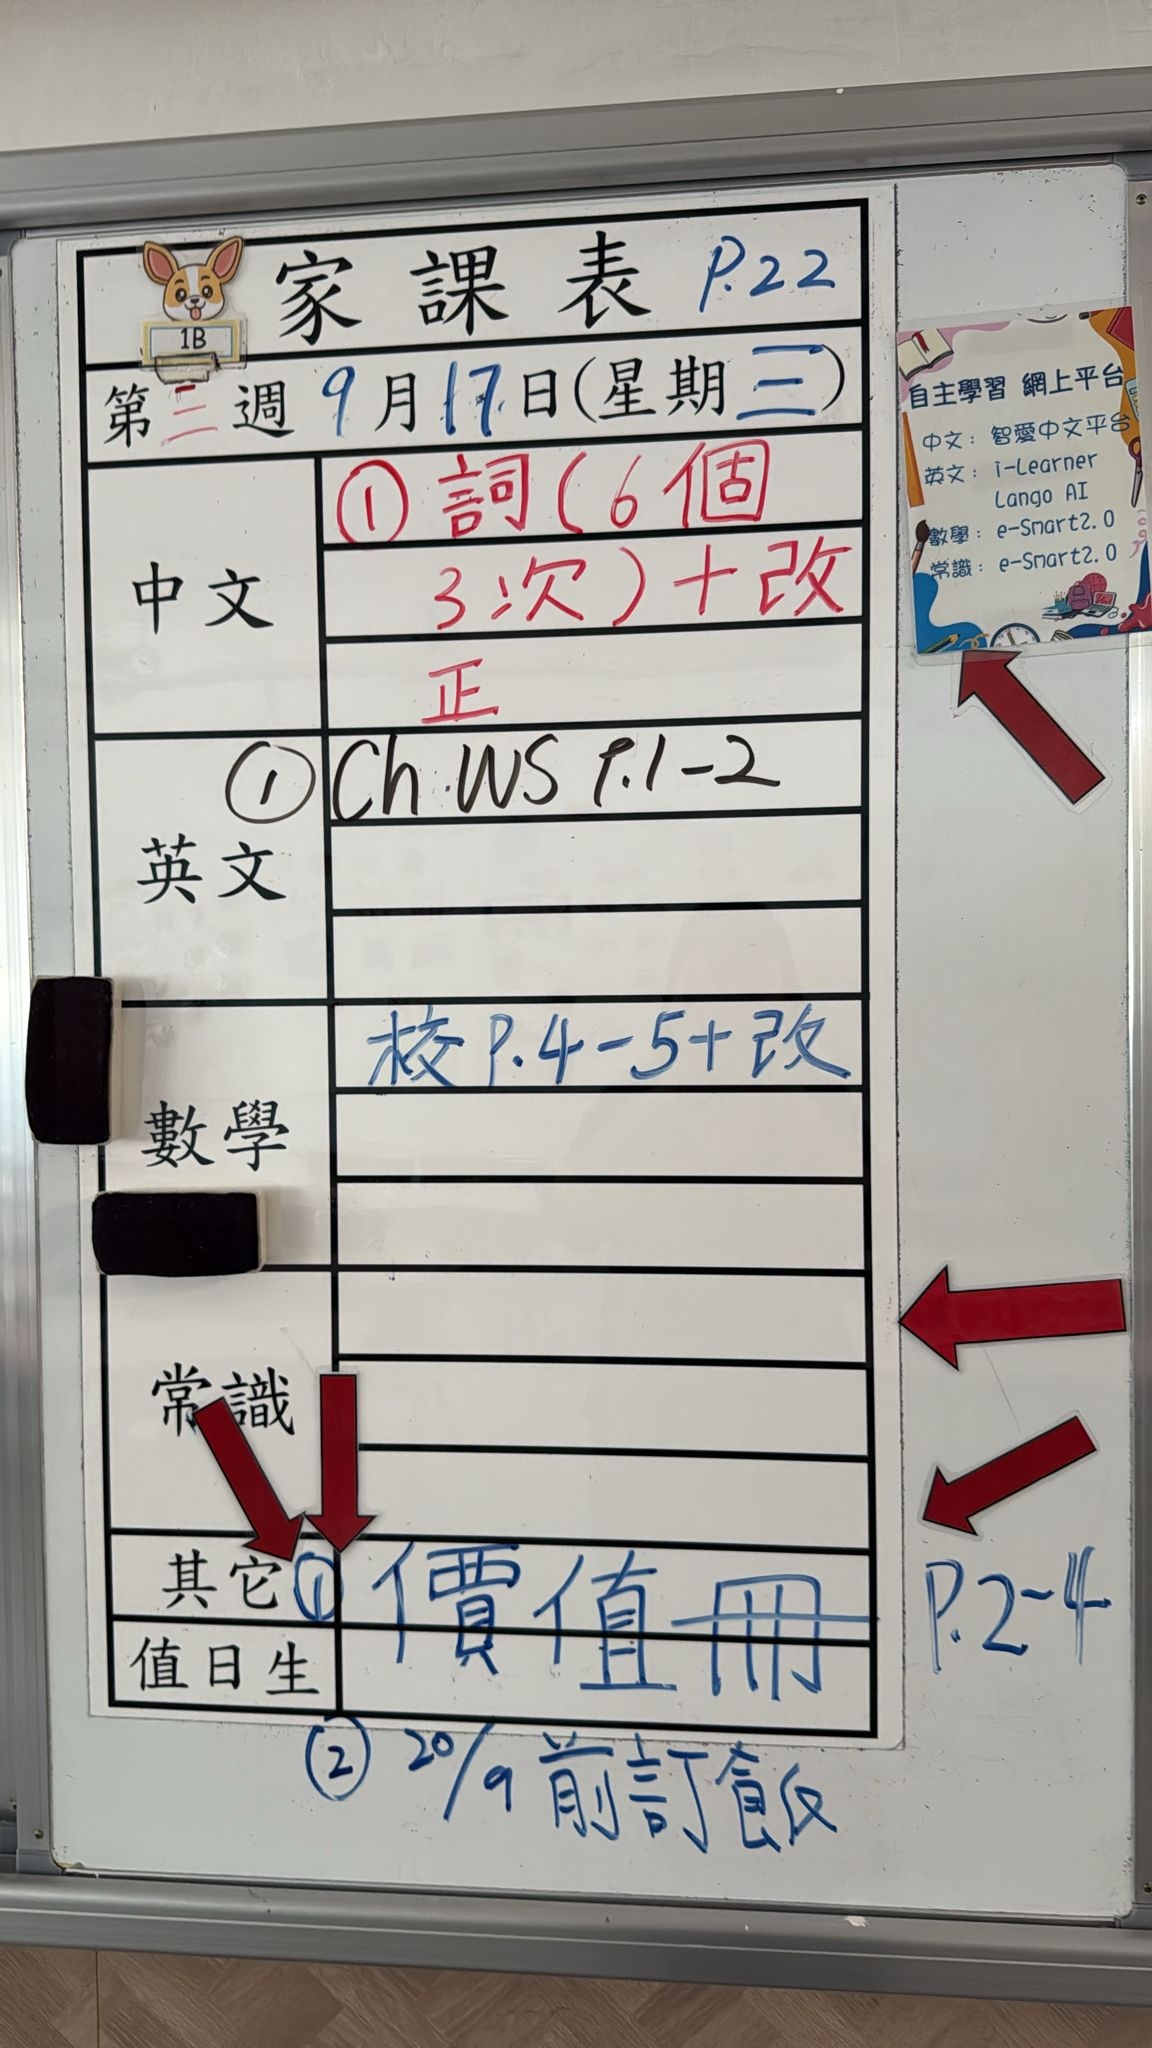 家課表 P.22
1B
第三週 9月17日(星期三)
中文
① 詞(6個
3次)+改
正
英文
① Ch.WS P.1-2
數學
校P.4-5+改
常識
其它 ① 價值冊 P.2-4
值日生
② 20/9前訂飯
自主學習 網上平台
中文: 智愛中文平台
英文: i-Learner
Lango AI
數學: e-Smart2.0
常識: e-Smart2.0